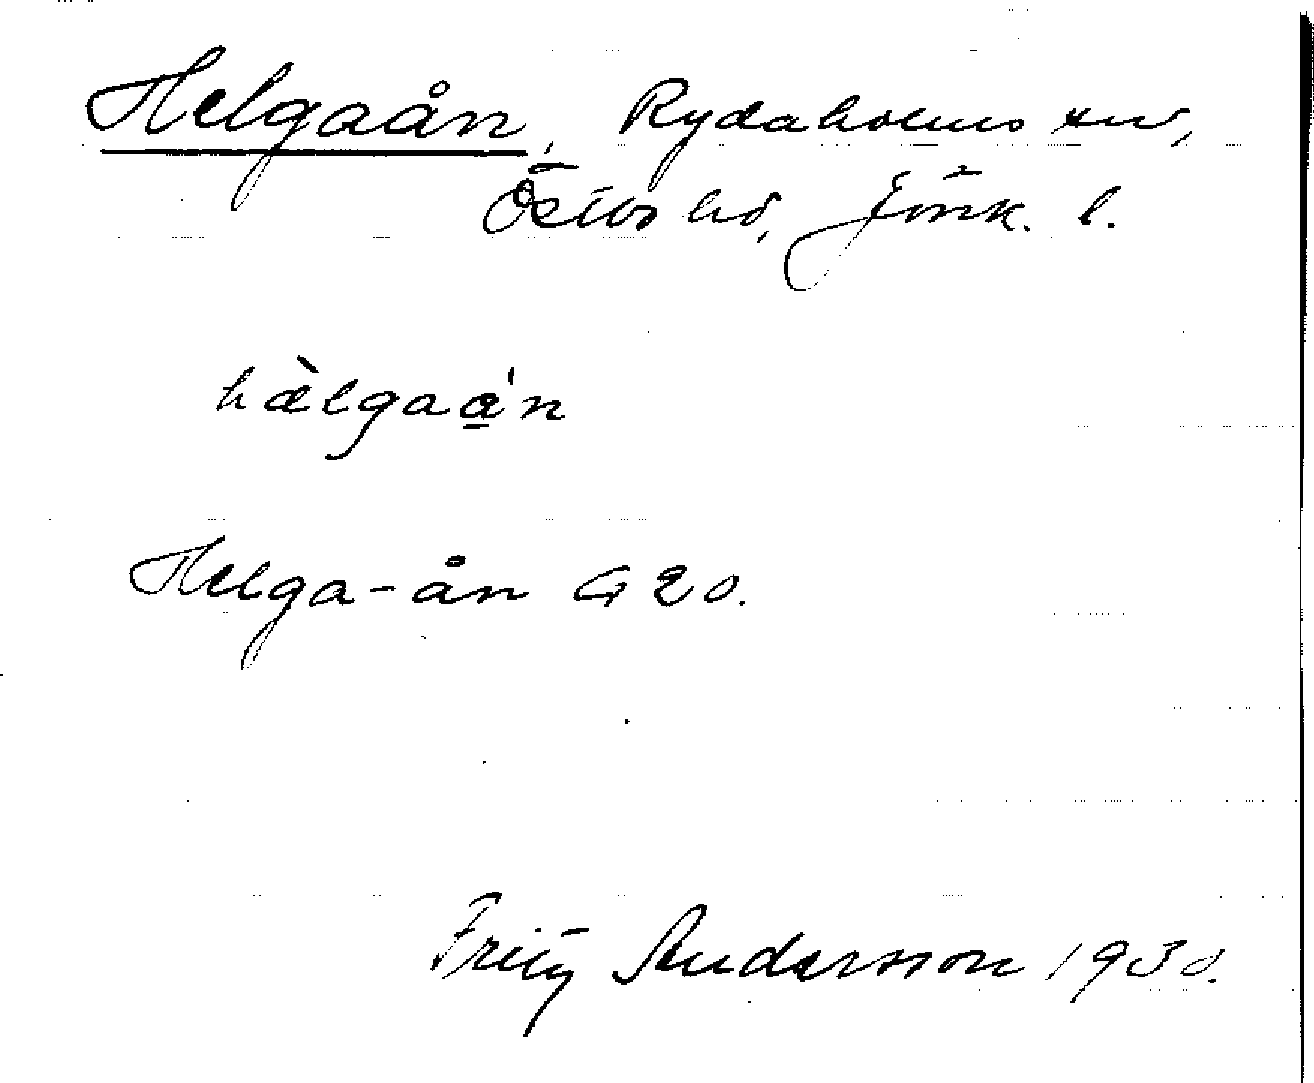 Helgaån, Rydaholms sn,
Östbo hd, Jönk. l.
hàlgaá̲n
Helga-ån G 20.
Fritz Andersson 1930.